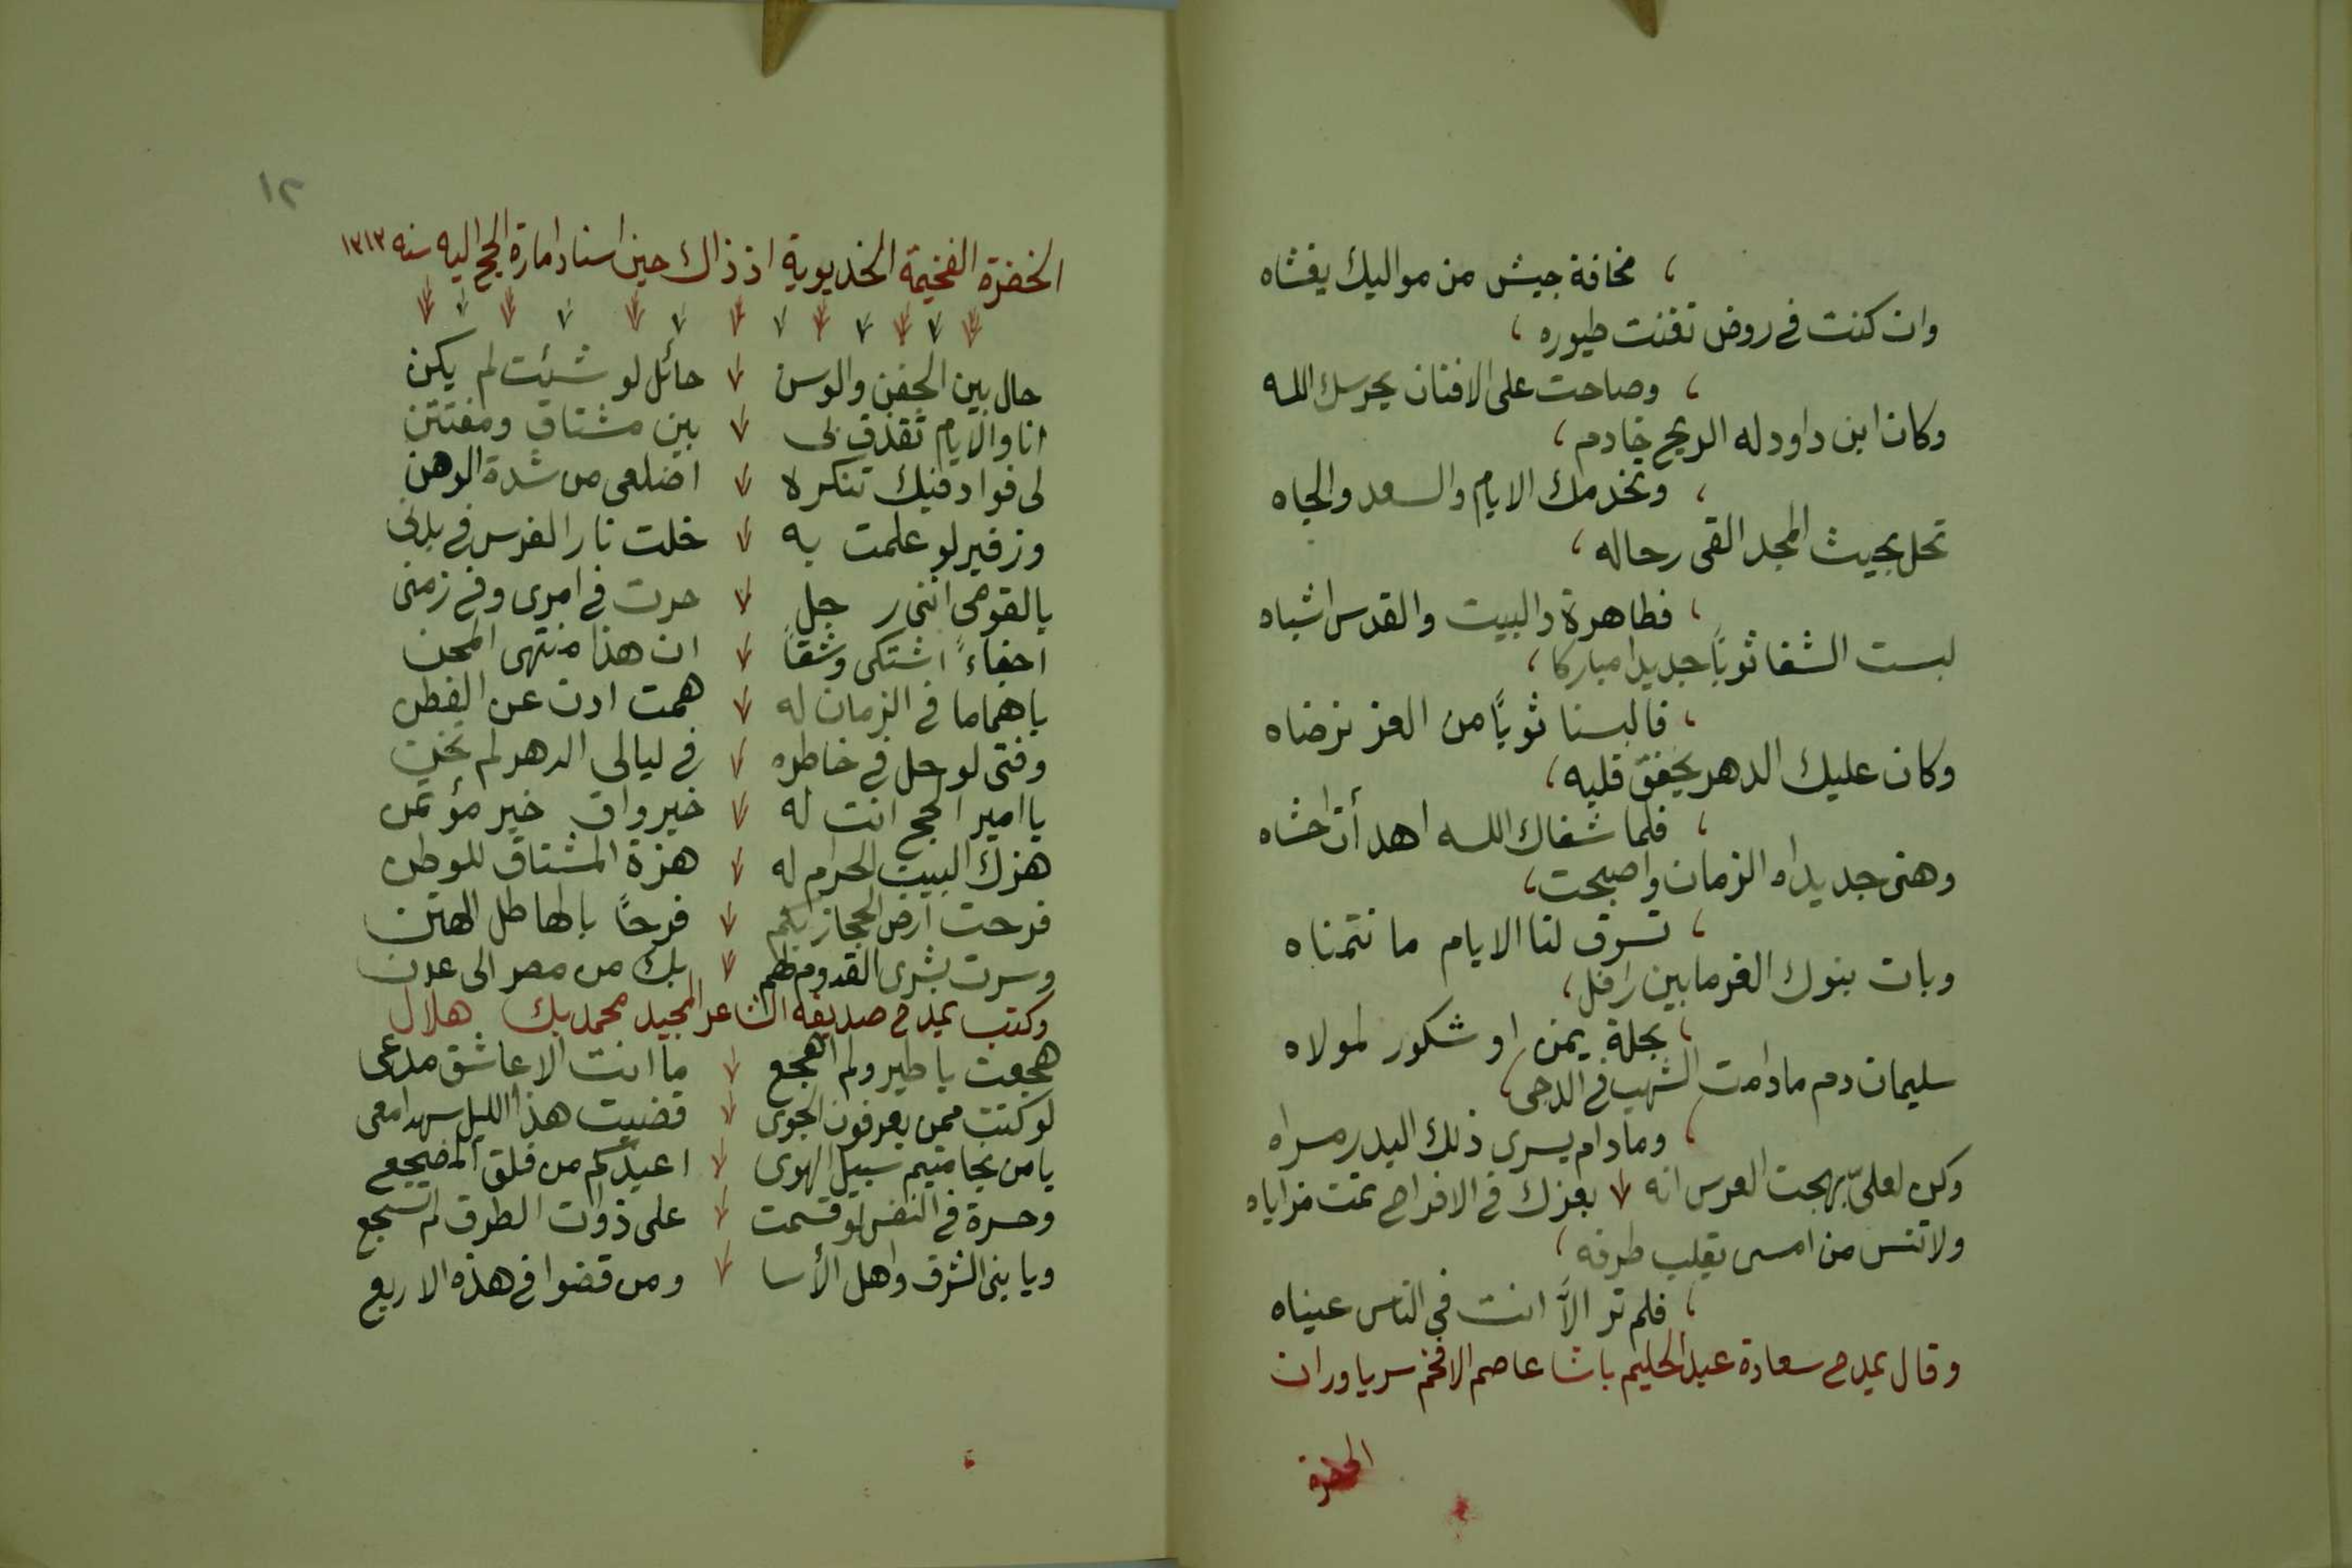 مخافة جيش من مواليك يغشاه
وان كنت فى روض تغنت طيوره
وصاحت على الافنان يحرسك الله
وكان ابن داود له الريح خادم
وتخدمك الايام والسعد والجاه
تحل بحيث المجد القى رحاله
فطاهرة والبيت والقدس اشباه
لبست الشفا ثوبًا جديدا مباركا
فالبسنا ثوبًا من العز نرضاه
وكان عليك الدهر يخفق قلبه
فلما شفاك الله اهدأت احشاه
وهنى جديداه الزمان واصبحت
تسوق لنا الايام ما نتمناه
وبات بنوك الغر مابين رافل
بحلة يمن او شكور لمولاه
سليمان دم مادامت الشهب فى الدجى
ومادام يسرى ذلك البدر مسراه
وكن لعلىّ بهجت العرس انه بعزك فى الافراح تمت مزاياه
ولا تنس من امسى يقلب طرفه
فلم تر الاّ انت فى الناس عيناه
وقال يمدح سعادة عبد الحليم باشا عاصم الافخم سرياوران
الحضرة
١٢
الحضرة الفخيمة الخديوية اذ ذاك حين اسناد امارة الحج اليه سنه ١٣١٣
حال بين الجفن والوسن حائل لو شئت لم يكن
انا والايام تقذف بى بين مشتاق ومفتتن
لى فواد فيك تنكره اضلعى من شدة الوهن
وزفير لو علمت به خلت نار الفرس فى بدنى
يالقومى اننى رجل حرت فى امرى وفى زمنى
اجفاءً اشتكى وشقاً ان هذا منتهى المحن
ياهماما فى الزمان له همت ادت عن الفطن
وفتى لو حل فى خاطره فى ليالى الدهر لم يخن
يا امير الحج انت له خير واق خير مؤتمن
هزك البيت الحرام له هزة المشتاق للوطن
فرحت ارض الحجاز بكم فرحًا بالهاطل الهتن
وسرت بشرى القدوم لهم بك من مصر الى عدن
وكتب يمدح صديقه الشاعر المجيد محمد بك هلال
هجعت يا طير ولم اهجع ما انت الا عاشق مدعى
لو كنت ممن يعرفون الجوى قضيت هذا الليل سهدا معى
يامن تحاميتم سبيل الهوى اعيذكم من قلق المضجع
وحسرة فى النفس لو قسمت على ذوات الطوق لم تسجع
ويا بنى الشوق واهل الأسا ومن قضوا فى هذه الاربع